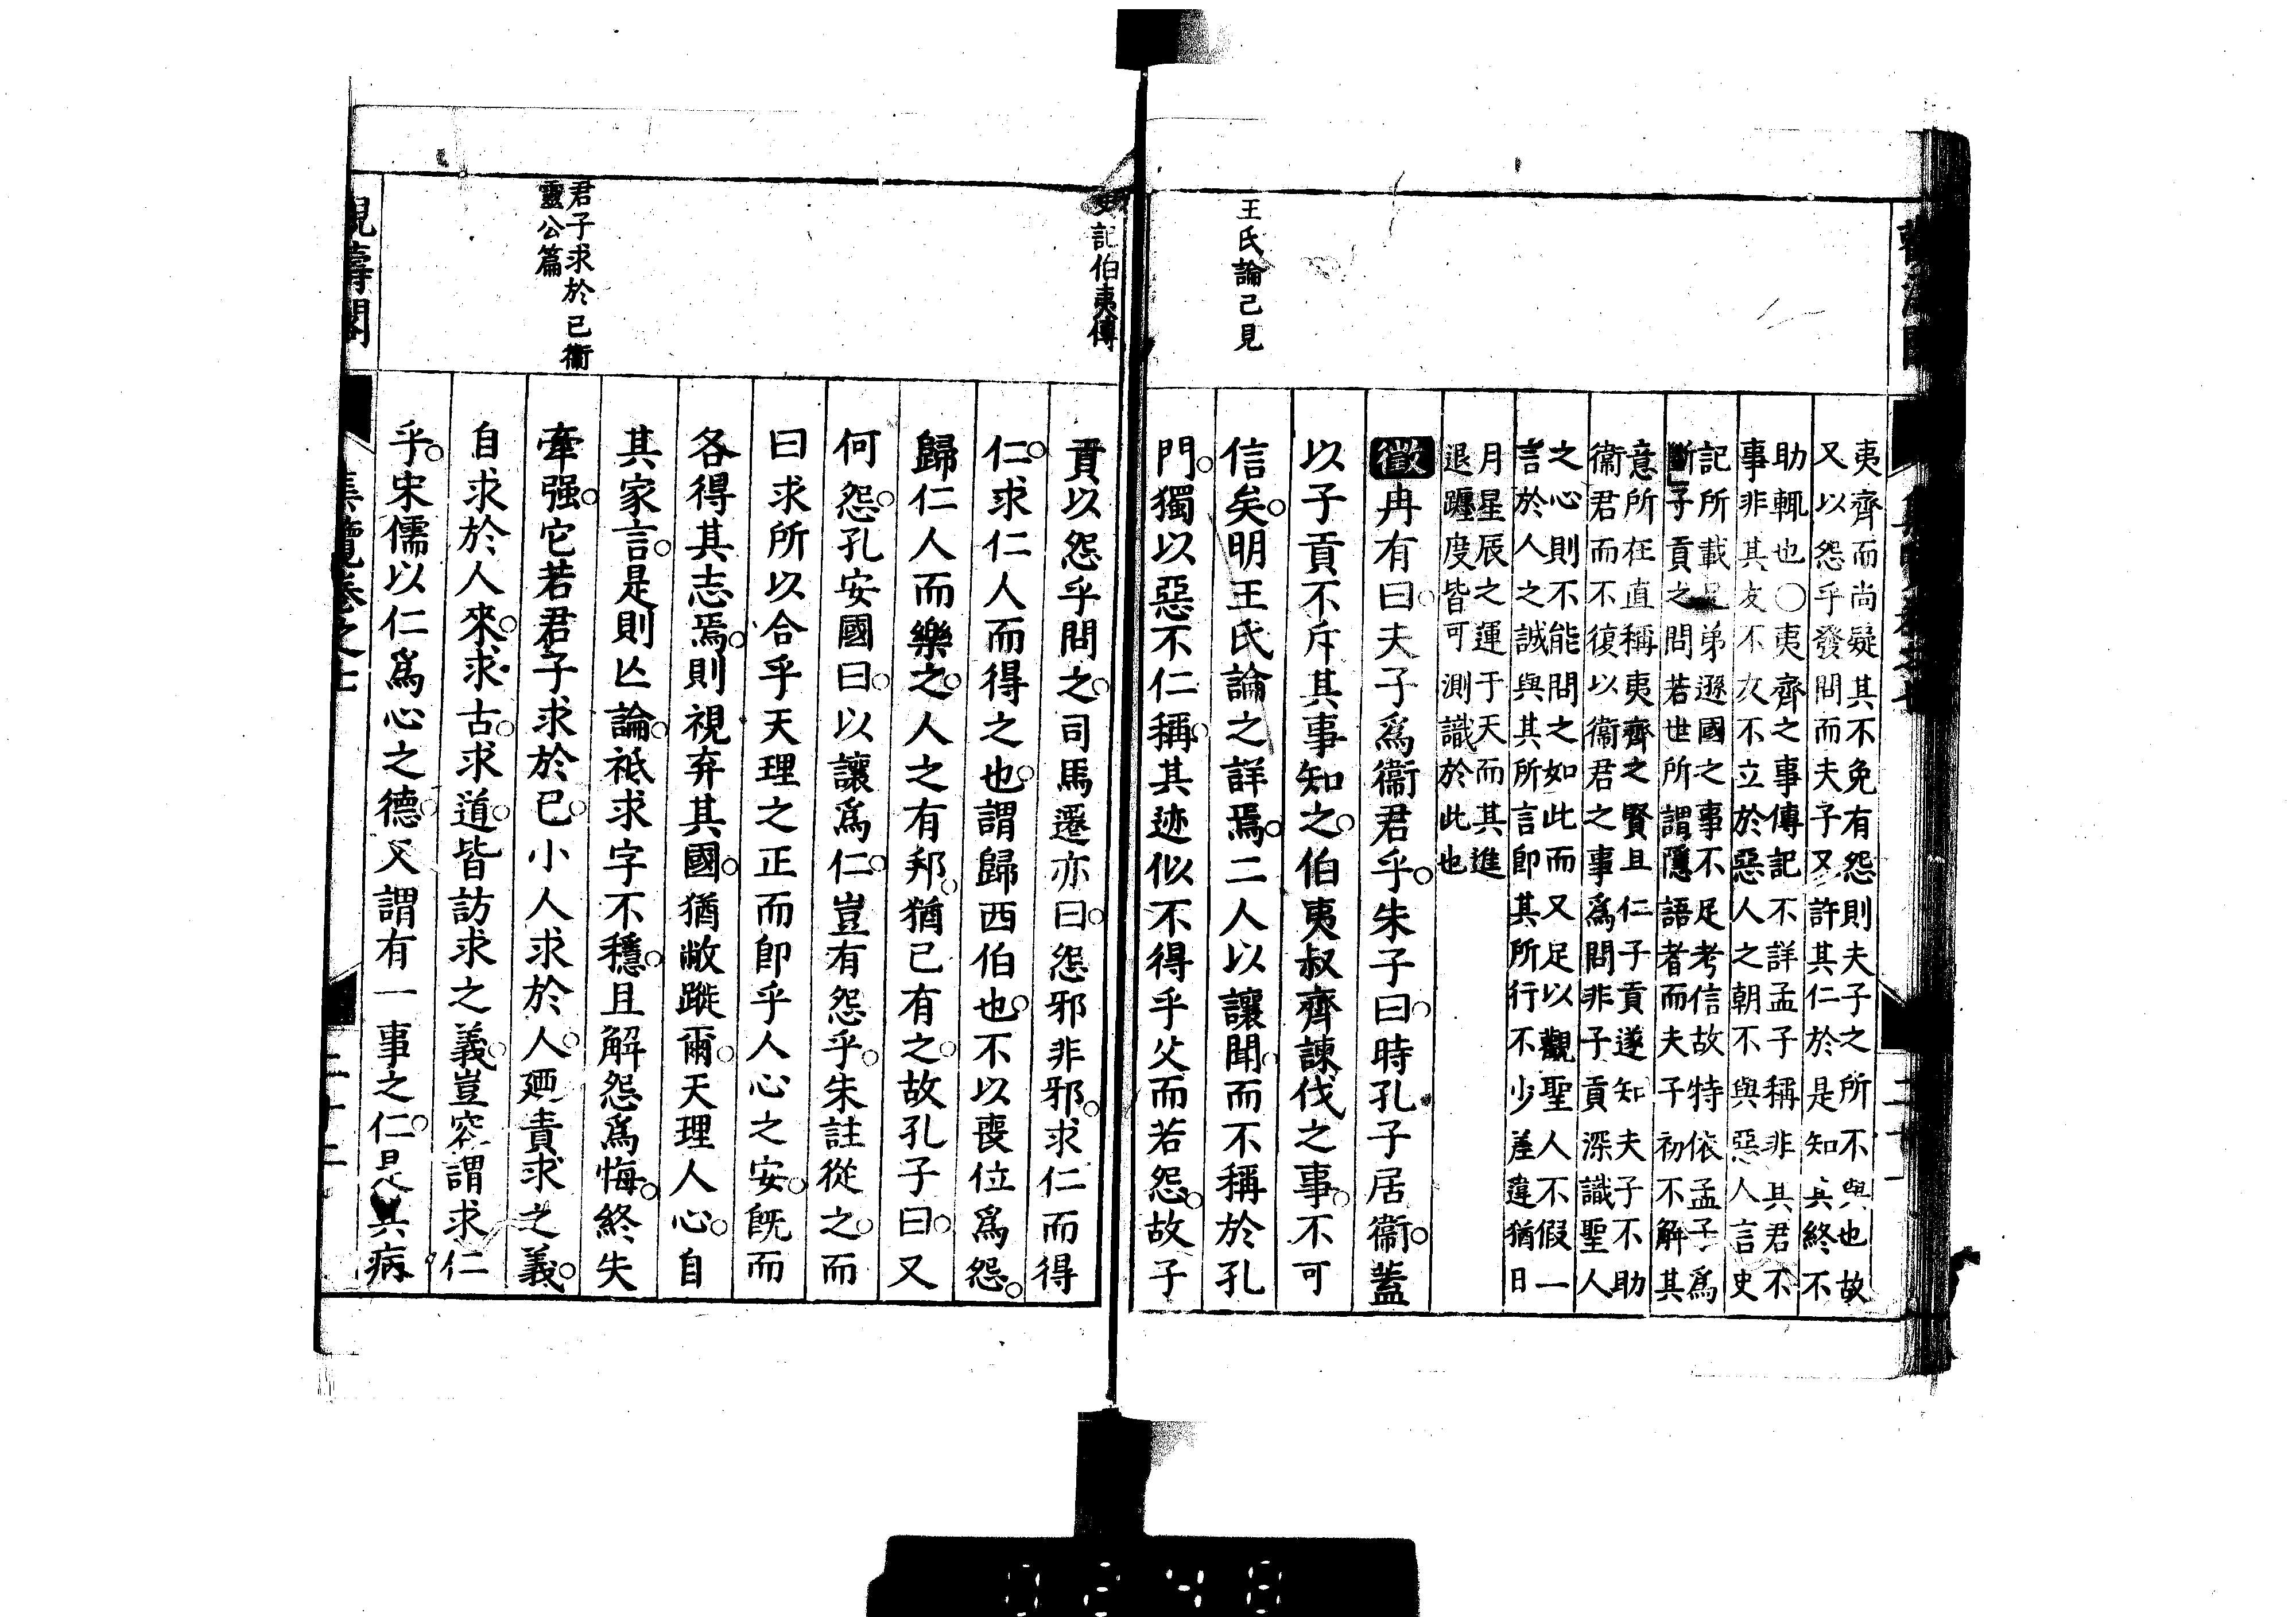 王氏論已見
夷齊而尚疑其不免有怨則夫子之所不與也故
又以怨乎發問而夫子又許其仁於是知其終不
助輒也○夷齊之事傳記不詳孟子稱非其君不
事非其友不友不立於惡人之朝不與惡人言史
記所載兄弟遜國之事不足考信故特依孟子爲
斷子貢之問若世所謂隱語者而夫子初不解其
意所在直稱夷齊之賢且仁子貢遂知夫子不助
衞君而不復以衞君之事爲問非子貢深識聖人
之心則不能問之如此而又足以觀聖人不假一
言於人之誠與其所言卽其所行不少差違猶日
月星辰之運于天而其進
退躔度皆可測識於此也
徵冉有曰夫子爲衞君乎朱子曰時孔子居衞蓋
以子貢不斥其事知之伯夷叔齊諫伐之事不可
信矣明王氏論之詳焉二人以讓聞而不稱於孔
門獨以惡不仁稱其迹似不得乎父而若怨故子
史記伯夷傳
君子求於己衞
靈公篇
貢以怨乎問之司馬遷亦曰怨邪非邪求仁而得
仁求仁人而得之也謂歸西伯也不以喪位爲怨
歸仁人而樂之人之有邦猶已有之故孔子曰又
何怨孔安國曰以讓爲仁豈有怨乎朱註從之而
曰求所以合乎天理之正而卽乎人心之安旣而
各得其志焉則視弃其國猶敝蹝爾天理人心自
其家言是則亾論祗求字不穩且解怨爲悔終失
牽强它若君子求於已小人求於人廼責求之義
自求於人來求古求道皆訪求之義豈容謂求仁
乎宋儒以仁爲心之德又謂有一事之仁是其病
集覽卷之七
二十二